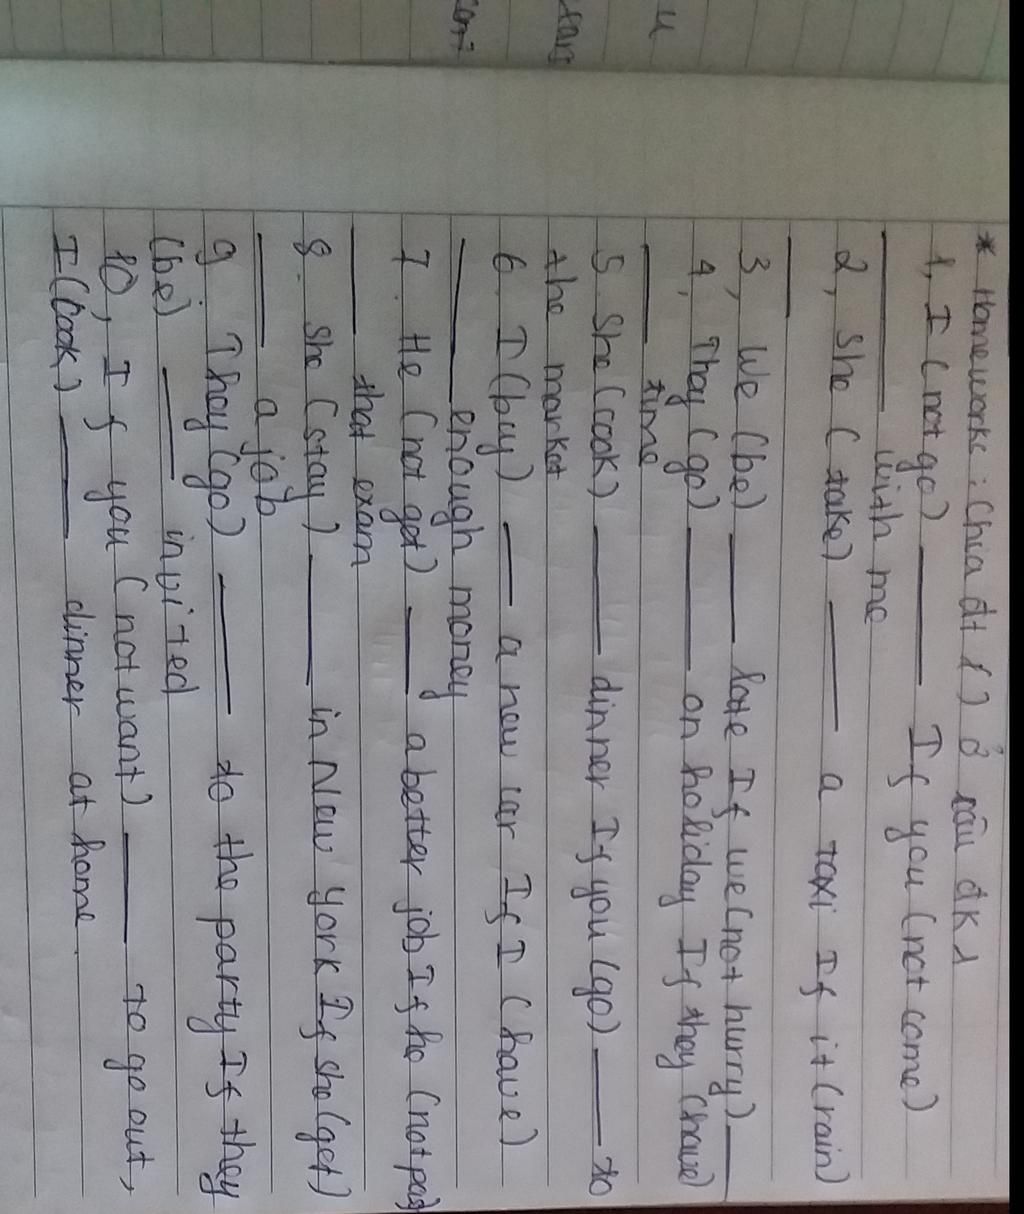 u
start
* Homeworks : Chia đt ( ) ở câu đk 1
1, I (not go) ______ If you (not come)
______ with me
2, She ( take) ______ a taxi If it (rain)
______
3, We (be) ______ late If we (not hurry) ______
4, They (go) ______ on holiday If they (have)
______ time
5 She (cook) ______ dinner If you (go) ______ to
the market
6. I (buy) ______ a new car If I (have)
______ enough money
7. He (not get) ______ a better job If he (not pass)
______ that exam
8. She (stay) ______ in New York If she (get)
______ a job
9 They (go) ______ to the party If they
(be) ______ invited
10, If you (not want) ______ to go out,
I (cook) ______ dinner at home.